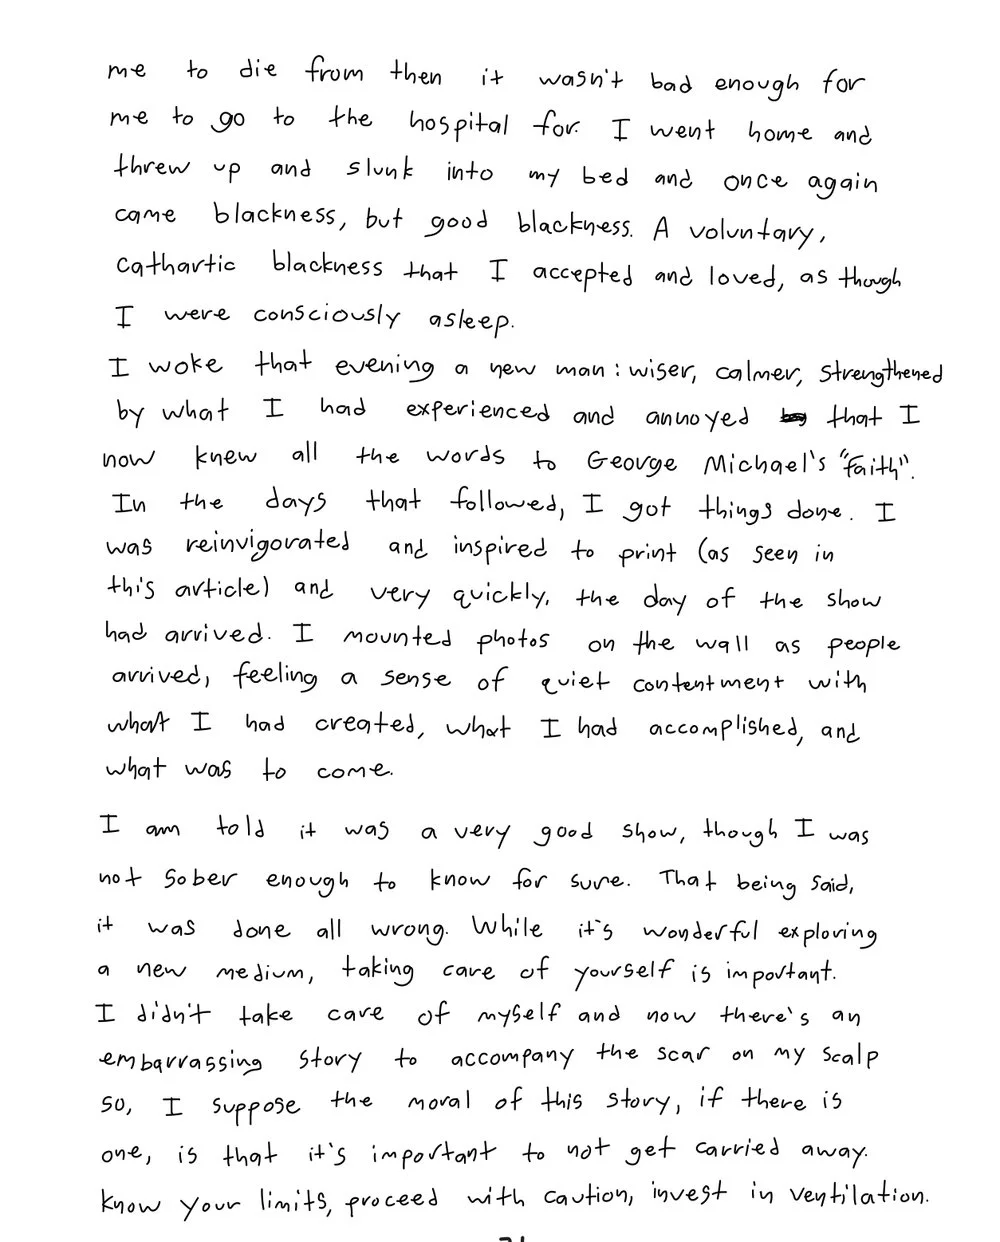 me to die from then it wasn't bad enough for
me to go to the hospital for. I went home and
threw up and slunk into my bed and once again
came blackness, but good blackness. A voluntary,
cathartic blackness that I accepted and loved, as though
I were consciously asleep.
I woke that evening a new man: wiser, calmer, strengthened
by what I had experienced and annoyed that I
now knew all the words to George Michael's "faith".
In the days that followed, I got things done. I
was reinvigorated and inspired to print (as seen in
this article) and very quickly, the day of the show
had arrived. I mounted photos on the wall as people
arrived, feeling a sense of quiet contentment with
what I had created, what I had accomplished, and
what was to come.
I am told it was a very good show, though I was
not sober enough to know for sure. That being said,
it was done all wrong. While it's wonderful exploring
a new medium, taking care of yourself is important.
I didn't take care of myself and now there's an
embarrassing story to accompany the scar on my scalp
so, I suppose the moral of this story, if there is
one, is that it's important to not get carried away.
Know your limits, proceed with caution, invest in ventilation.